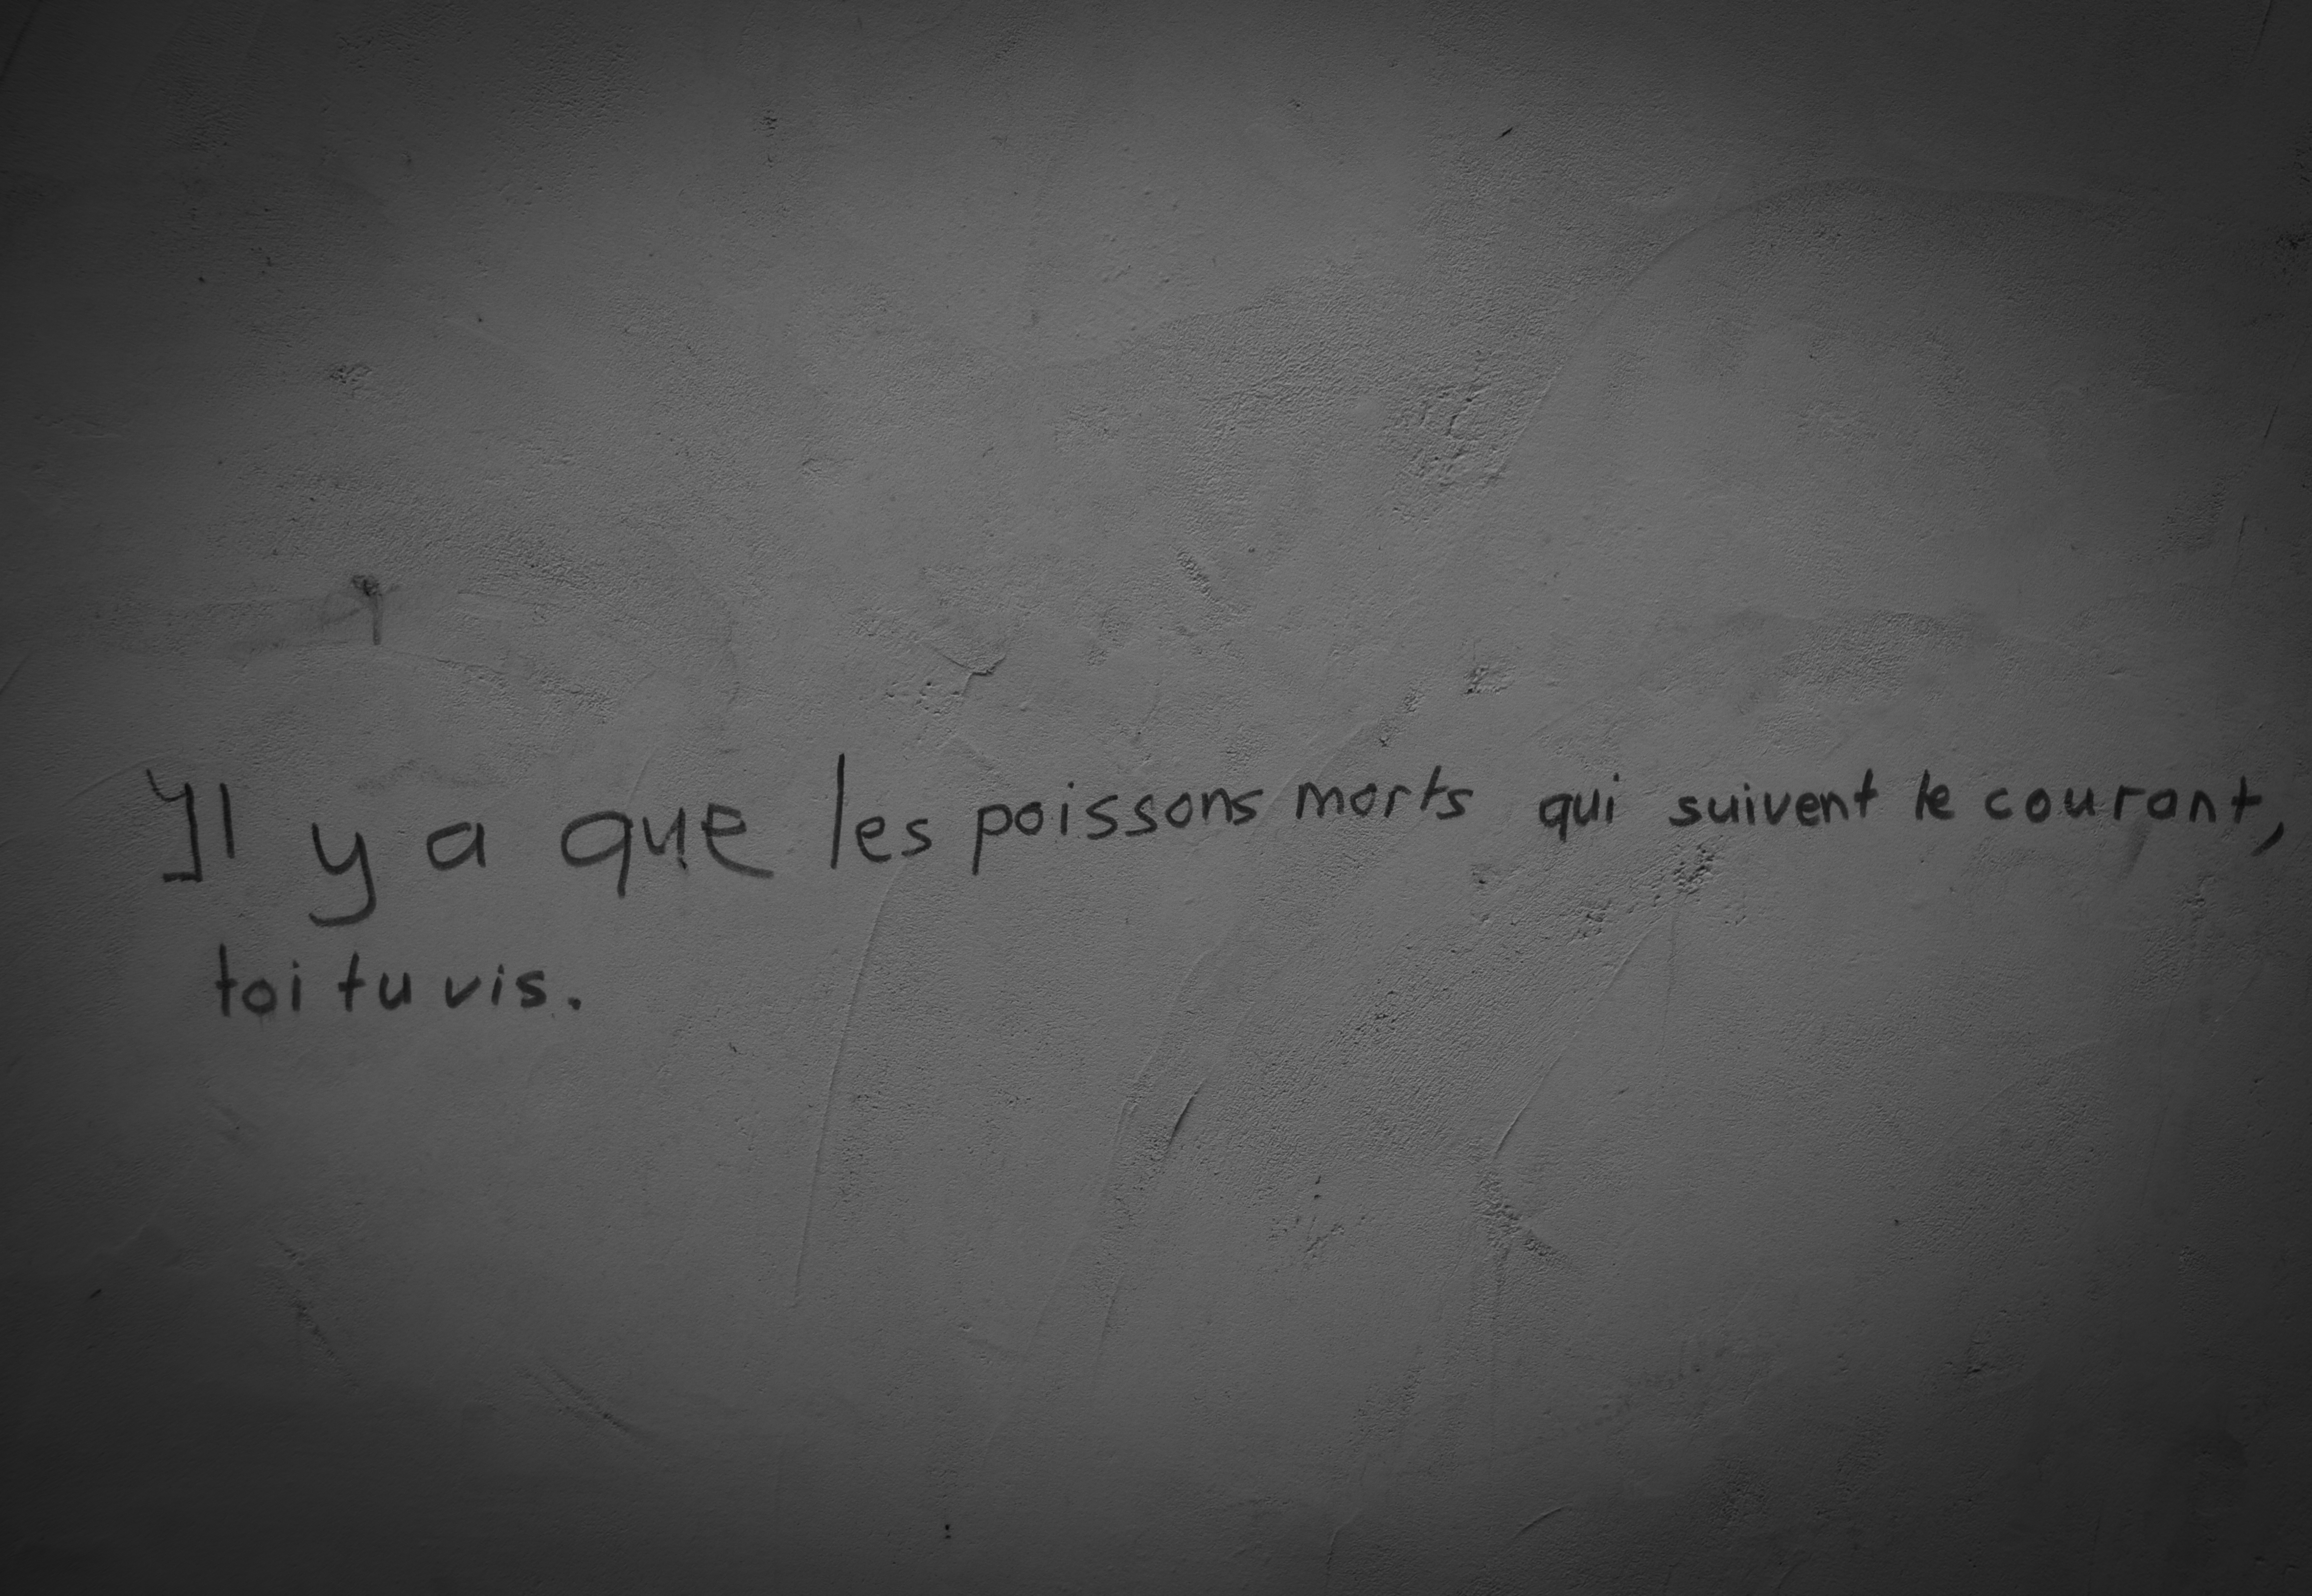 Il y a que les poissons morts qui suivent le courant,
toi tu vis.